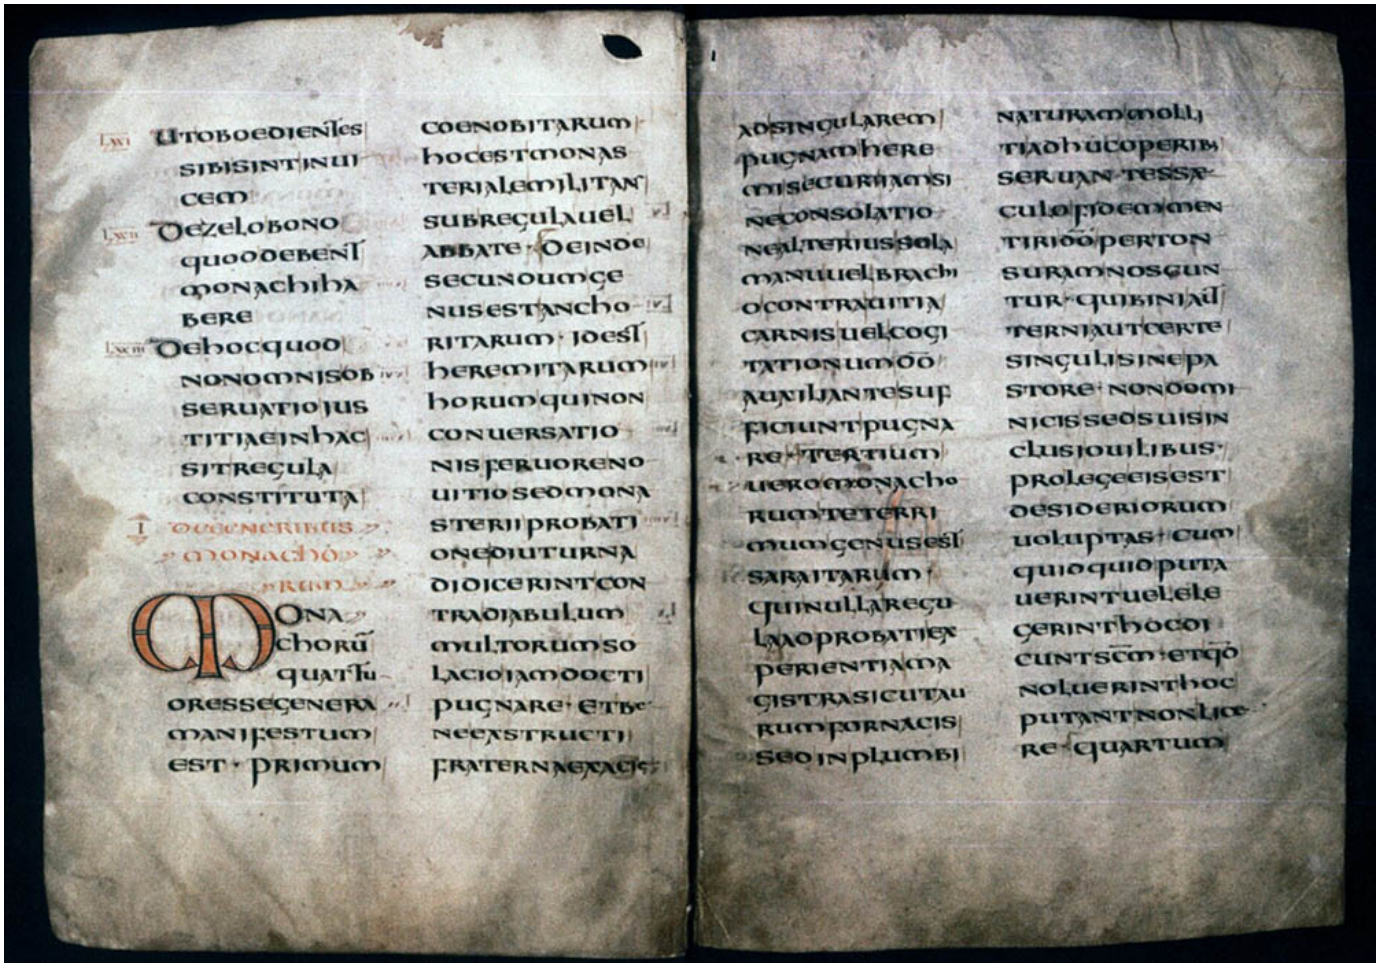 LXXI UTOBOEDIENTES
SIBISINTINUI
CEM
LXXII DEZELOBONO
QUODDEBENT
MONACHIHA
BERE
LXXIII DEHOCQUOD
NONOMNISOB
SERUATIOIUS
TITIAEINHAC
SITREGULA
CONSTITUTA
I DEGENERIBUS
MONACHŌ
RUM
MONA
CHORŪ
QUATTU
ORESSEGENERA
MANIFESTUM
EST· PRIMUM
COENOBITARUM
HOCESTMONAS
TERIALEMILITANS
SUBREGULAUEL
ABBATE· DEINDE
SECUNDUMGE
NUSESTANCHO
RITARUM· IDEST
HEREMITARUM
HORUMQUINON
CONUERSATIO
NISFERUORENO
UITIOSEDMONA
STERIIPROBATI
ONEDIUTURNA
DIDICERINTCON
TRADIABULUM
MULTORUMSO
LACIOIAMDOCTI
PUGNARE· ETBE
NEEXSTRUCTI
FRATERNAEXACIE
ADSINGULAREM
PUGNAMHERE
MISECURIIAMSI
NECONSOLATIO
NEALTERIUSSOLA
MANUUELBRACHI
OCONTRAUITIA
CARNISUELCOGI
TATIONUMDŌ
AUXILIANTESUF
FICIUNTPUGNA
RE· TERTIUM
UEROMONACHO
RUMTETERRI
MUMGENUSEST
SARAITARUM·
QUINULLAREGU
LAADPROBATIEX
PERIENTIAMA
GISTRASICUTAU
RUMFORNACIS
SEDINPLUMBI
NATURAMMOLLI
TIADHUCOPERIB;
SERUANTESSAE
CULOFIDEMMEN
TIRIDŌPERTON
SURAMNOSCUN
TUR· QUIBINIAUT
TERNIAUTCERTE
SINGULISINEPA
STORE· NONDOMI
NICISSEDSUISIN
CLUSIOUILIBUS·
PROLEGEEISEST
DESIDERIORUM
UOLUPTAS· CUM
QUIDQUIDPUTA
UERINTUELELE
GERINTHOCDI
CUNTSCM̄· ETQD̄
NOLUERINTHOC
PUTANTNONLICE
RE· QUARTUM